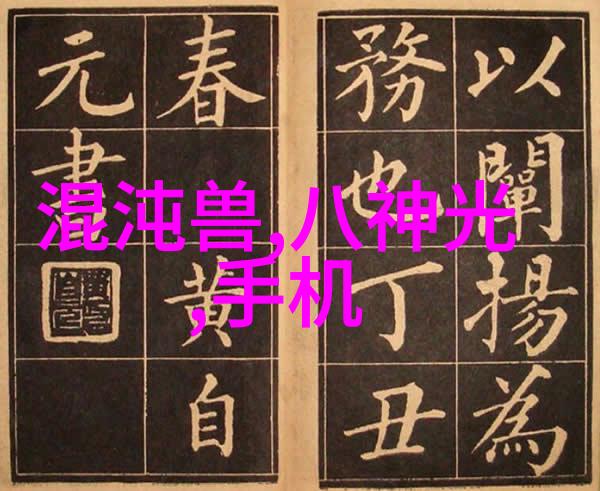 以闡揚為
務也丁丑
春黄自
元書
混沌兽,八神光
,手机